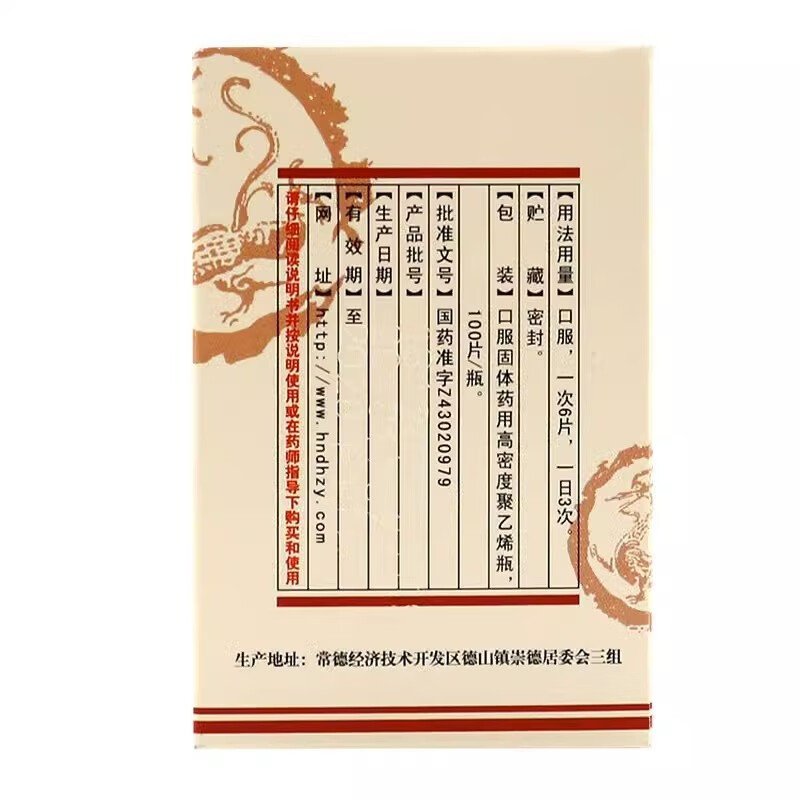 【用法用量】口服，一次6片，一日3次。
【贮藏】密封。
【包装】口服固体药用高密度聚乙烯瓶，
100片/瓶。
【批准文号】国药准字Z43020979
【产品批号】
【生产日期】
【有效期】至
【网址】http://www.hndhzy.com
请仔细阅读说明书并按说明使用或在药师指导下购买和使用
生产地址：常德经济技术开发区德山镇崇德居委会三组